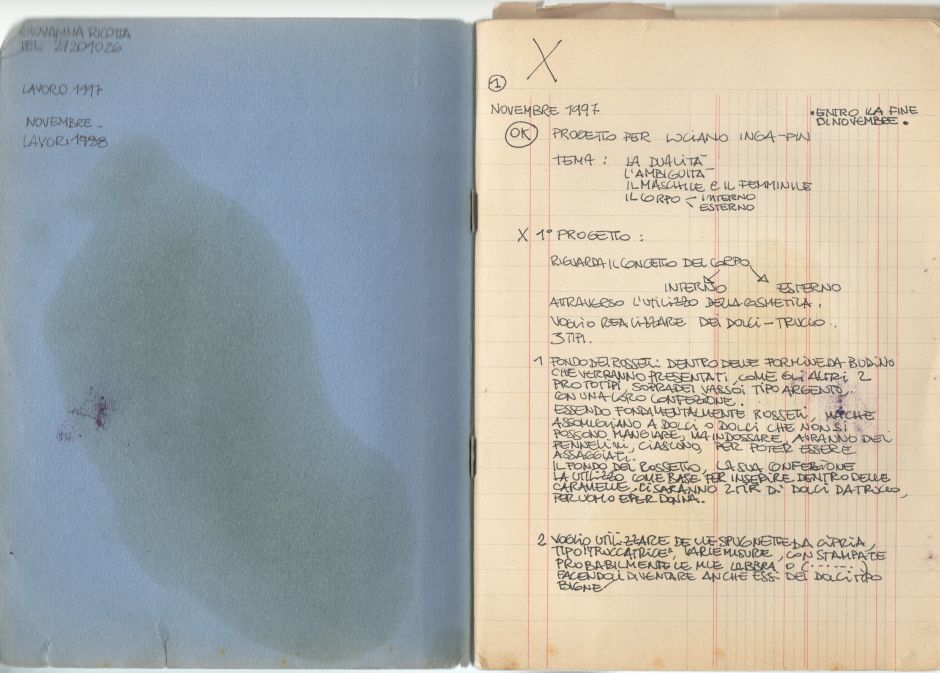 GIOVANNA RICOTTA
TEL. 2/201026
LAVORO 1997
NOVEMBRE -
LAVORI 1998
X
1
NOVEMBRE 1997
• ENTRO LA FINE
DI NOVEMBRE •
OK PROGETTO PER LUCIANO INGA-PIN
TEMA: LA DUALITÀ
L'AMBIGUITÀ
IL MASCHILE E IL FEMMINILE
IL CORPO - INTERNO
ESTERNO
X 1° PROGETTO:
RIGUARDA IL CONCETTO DEL CORPO
INTERNO ESTERNO
ATTRAVERSO L'UTILIZZO DELLA COSMETICA.
VOGLIO REALIZZARE DEI DOLCI-TRUCCO.
3 TIPI.
1 FONDO DEI ROSSETTI: DENTRO DELLE FORMINE DA BUDINO
CHE VERRANNO PRESENTATI, COME GLI ALTRI 2
PROTOTIPI, SOPRA DEI VASSOI TIPO ARGENTO,
CON UNA LORO CONFEZIONE.
ESSENDO FONDAMENTALMENTE ROSSETTI, MA CHE
ASSOMIGLIANO A DOLCI O DOLCI CHE NON SI
POSSONO MANGIARE, MA INDOSSARE, AVRANNO DEI
PENNELLINI, CIASCUNO, PER POTER ESSERE
ASSAGGIATI.
IL FONDO DEL ROSSETTO, LA SUA CONFEZIONE
LA UTILIZZO COME BASE PER INSERIRE DENTRO DELLE
CARAMELLE, CI SARANNO 2 TIPI DI DOLCI DA TRUCCO,
PER UOMO E PER DONNA.
2 VOGLIO UTILIZZARE DELLE SPUGNETTE DA CIPRIA,
TIPO "TRUCCATRICE", VARIE MISURE, CON STAMPATE
PROBABILMENTE LE MIE LABBRA O (.......)
FACENDOLI DIVENTARE ANCHE ESSI DEI DOLCI TIPO
BIGNE'